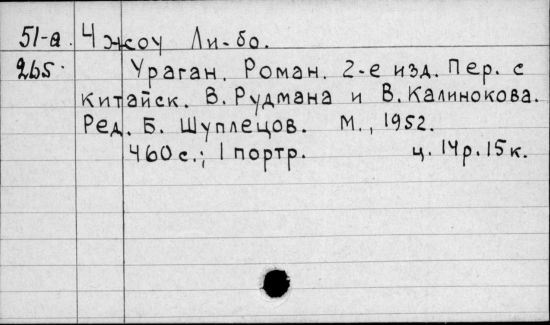 51-а. Чжоу Ли-бо.
265. Ураган. Роман. 2-е изд. Пер. с
китайск. В. Рудмана и В. Калинокова.
Ред. Б. Шуплецов. М., 1952.
460 с.; 1 портр. ц. 14р. 15к.